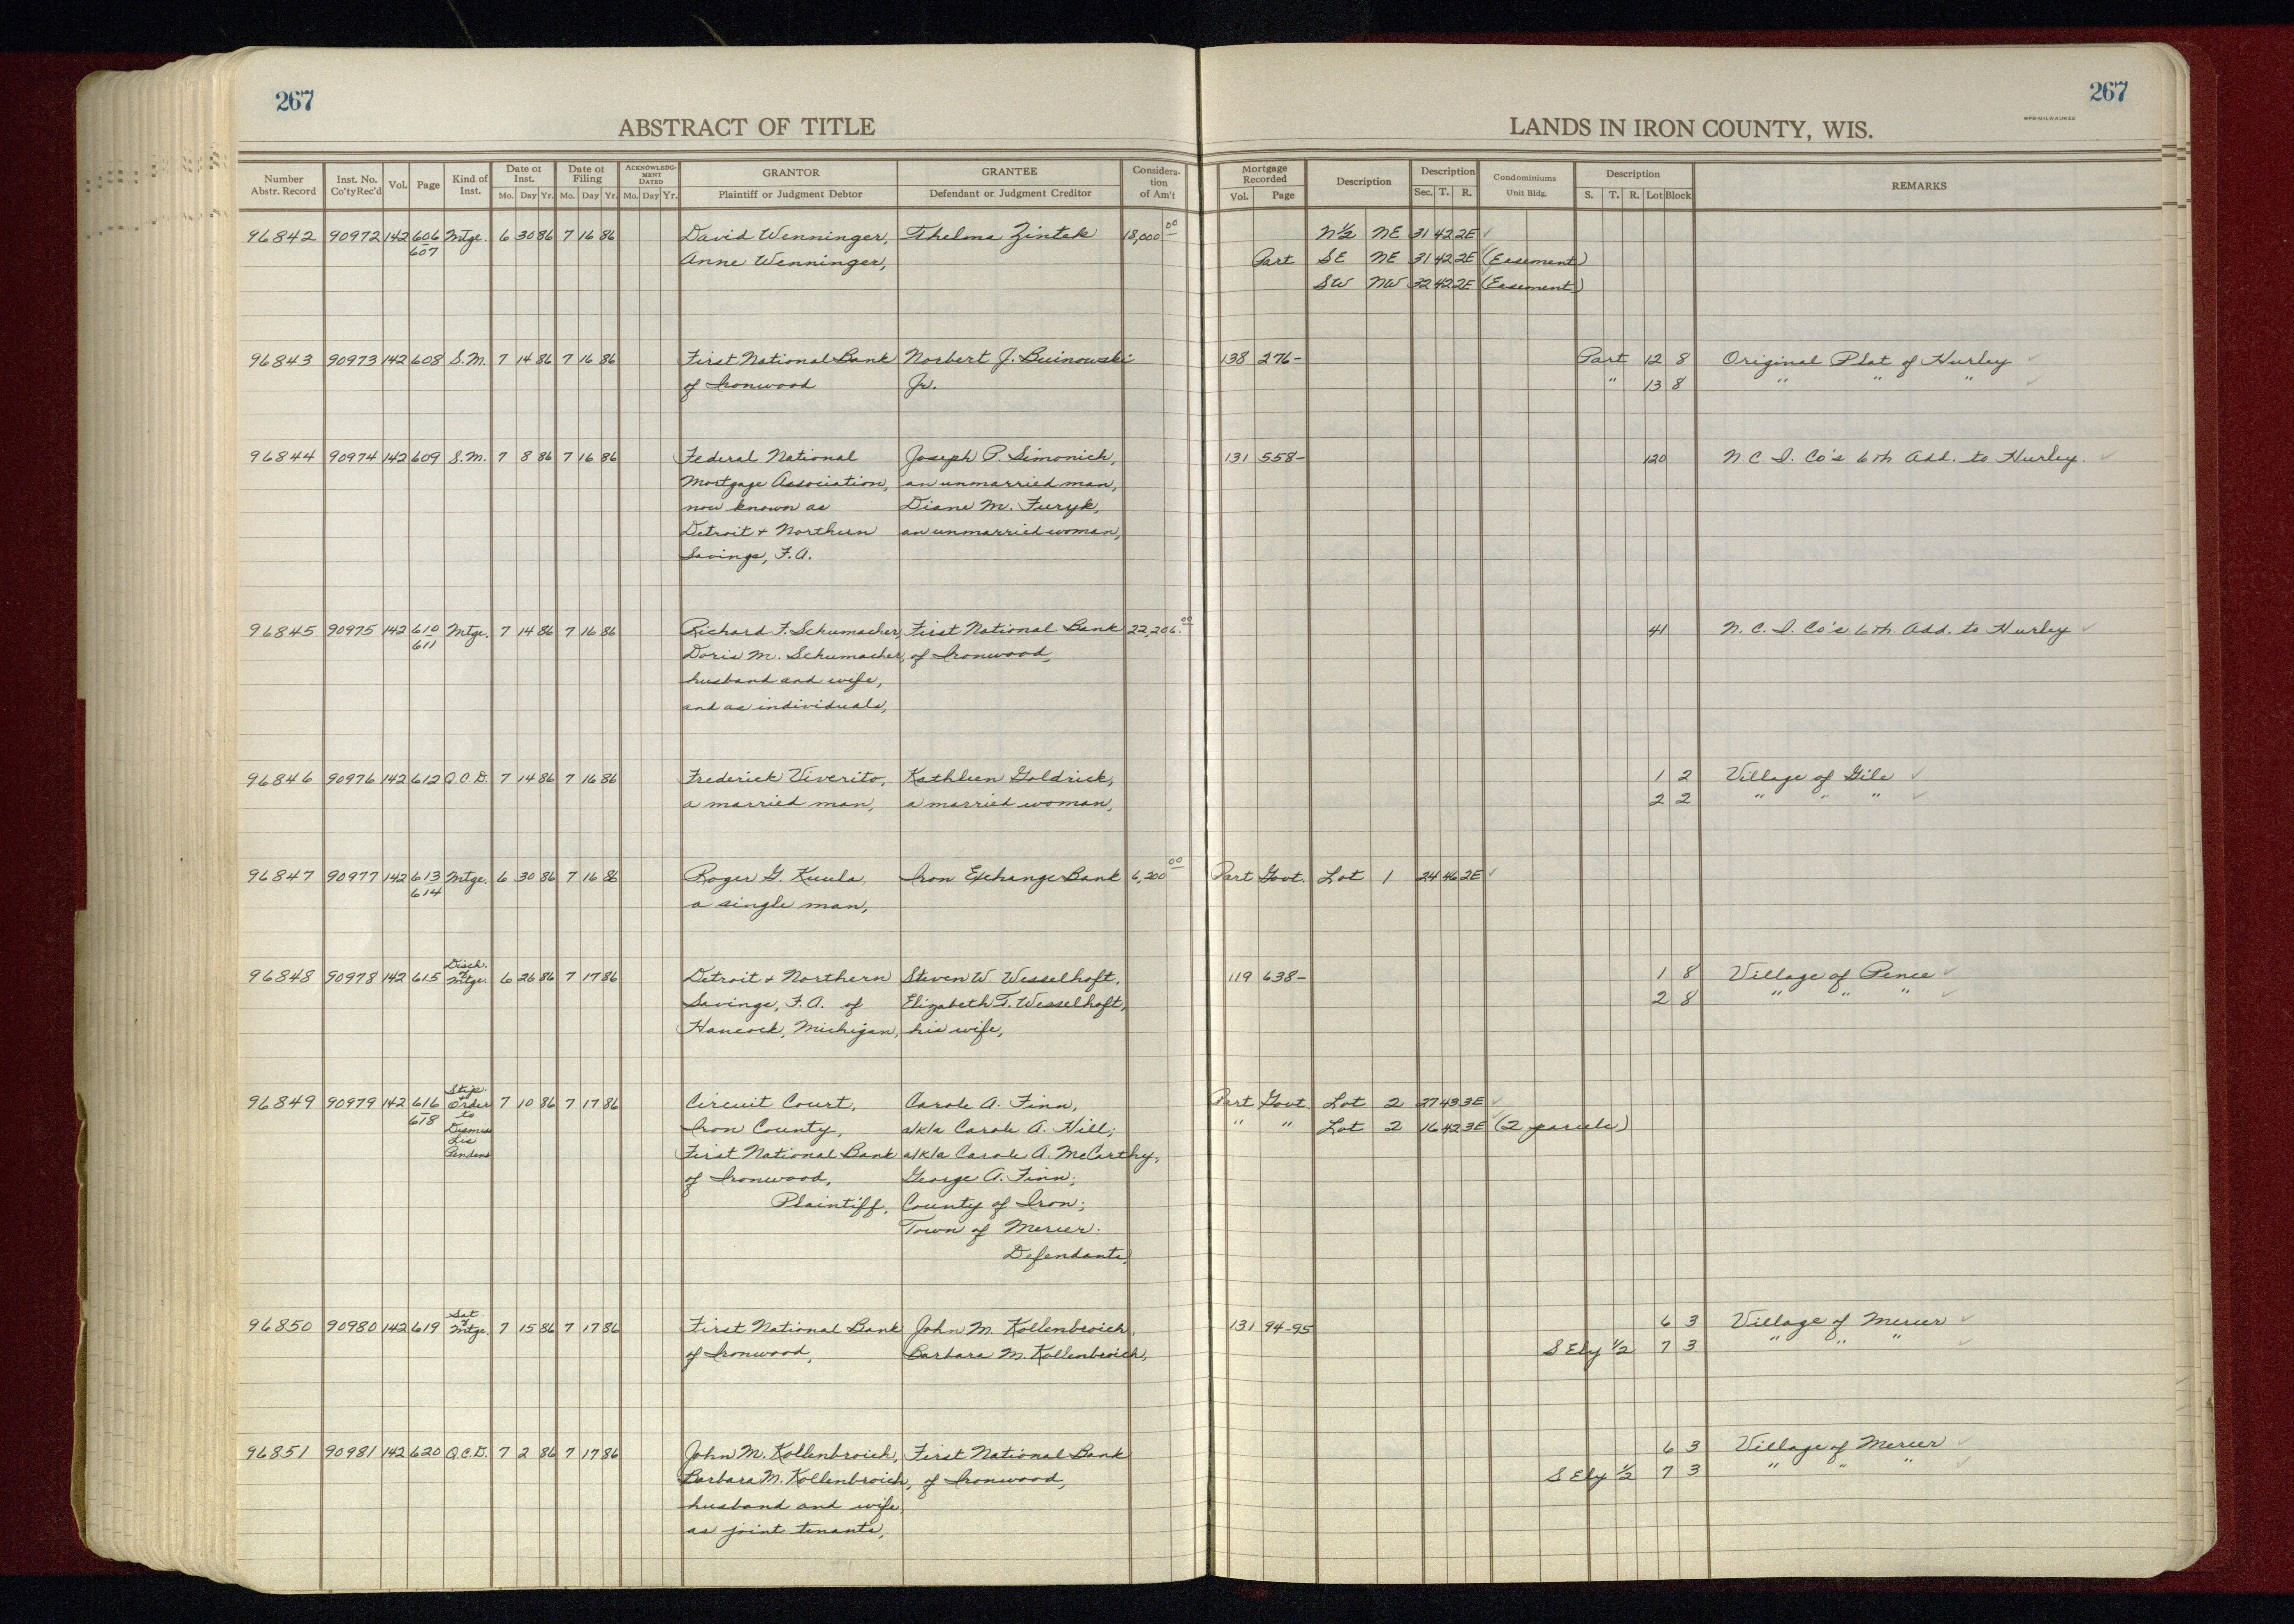 267
ABSTRACT OF TITLE
Number Abstr. Record | Inst. No. Co'ty Rec'd | Vol. | Page | Kind of Inst. | Date of Inst. Mo. Day Yr. | Date of Filing Mo. Day Yr. | ACKNOWLEDGMENT DATED Mo. Day Yr. | GRANTOR Plaintiff or Judgment Debtor | GRANTEE Defendant or Judgment Creditor | Consideration of Am't
267
LANDS IN IRON COUNTY, WIS.
WPB-MILWAUKEE
Mortgage Recorded Vol. Page | Description | Description Sec. T. R. | Condominiums Unit Bldg. | Description S. T. R. Lot Block | REMARKS
96842 90972 142 606 Mtge. 6 30 86 7 16 86 David Wenninger, Thelma Zintek 18,000 00 N½ NE 31 42 2E ✓
607 Anne Wenninger, Part SE NE 31 42 2E (Easement)
SW NW 32 42 2E (Easement)
96843 90973 142 608 S.M. 7 14 86 7 16 86 First National Bank Norbert J. Buinowski 138 276- Part 12 8 Original Plat of Hurley ✓
of Ironwood Jr. " 13 8 " " " ✓
96844 90974 142 609 S.M. 7 8 86 7 16 86 Federal National Joseph P. Simonich, 131 558- 120 N C I. Co's 6th Add. to Hurley. ✓
Mortgage Association, an unmarried man,
now known as Diane M. Furyk,
Detroit & Northern an unmarried woman,
Savings, F.A.
96845 90975 142 610 Mtge. 7 14 86 7 16 86 Richard F. Schumacher, First National Bank 22,206. 00 41 N. C. I. Co's 6th Add. to Hurley ✓
611 Doris M. Schumacher, of Ironwood,
husband and wife,
and as individuals,
96846 90976 142 612 Q.C.D. 7 14 86 7 16 86 Frederick Viverito, Kathleen Goldrick, 1 2 Village of Gile ✓
a married man, a married woman, 2 2 " " " ✓
96847 90977 142 613 Mtge. 6 30 86 7 16 86 Roger G. Kuula, Iron Exchange Bank 6,200 00 Part Govt. Lot 1 24 46 2E ✓
614 a single man,
96848 90978 142 615 Disch. of Mtge. 6 26 86 7 17 86 Detroit & Northern Steven W. Wesselhoft, 119 638- 1 8 Village of Pence ✓
Savings, F.A. of Elizabeth T. Wesselhoft, 2 8 " " " ✓
Hancock, Michigan, his wife,
96849 90979 142 616 Stip. & Order to Dismiss Lis Pendens 7 10 86 7 17 86 Circuit Court, Carole A. Finn, Part Govt. Lot 2 27 43 3E ✓
618 Iron County, a/k/a Carole A. Hill; " " Lot 2 16 42 3E (2 parcels)
First National Bank a/k/a Carole A. McCarthy,
of Ironwood, George A. Finn;
Plaintiff, County of Iron;
Town of Mercer;
Defendants,
96850 90980 142 619 Sat of Mtge. 7 15 86 7 17 86 First National Bank John M. Kollenbroich, 131 94-95 6 3 Village of Mercer ✓
of Ironwood, Barbara M. Kollenbroich, S Ely ½ 7 3 " " " ✓
96851 90981 142 620 Q.C.D. 7 2 86 7 17 86 John M. Kollenbroich, First National Bank 6 3 Village of Mercer ✓
Barbara M. Kollenbroich, of Ironwood, S Ely ½ 7 3 " " " ✓
husband and wife,
as joint tenants,